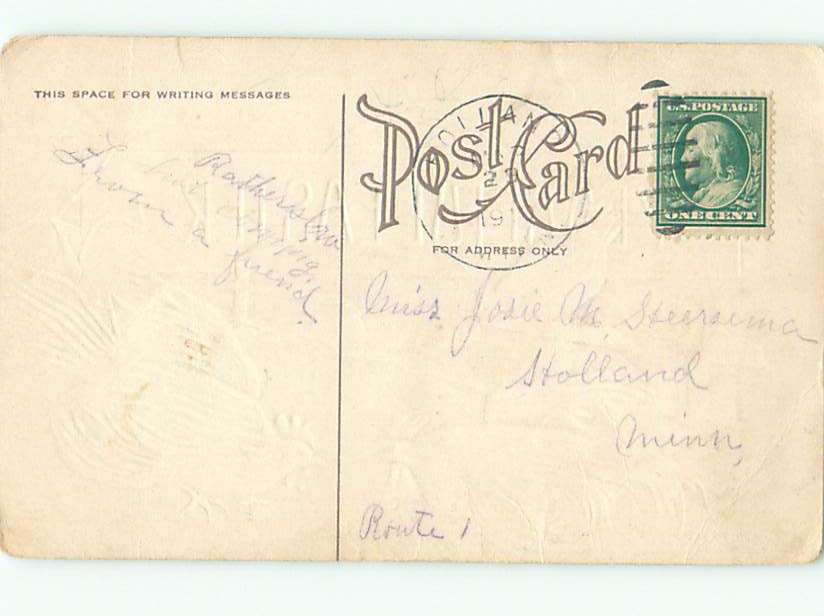 THIS SPACE FOR WRITING MESSAGES
Rather slow
but coming.
From a
friend.
Post Card
FOR ADDRESS ONLY
HOLLAND
U.S. POSTAGE
ONE CENT
Miss Josie M.
Holland
Minn,
Route 1